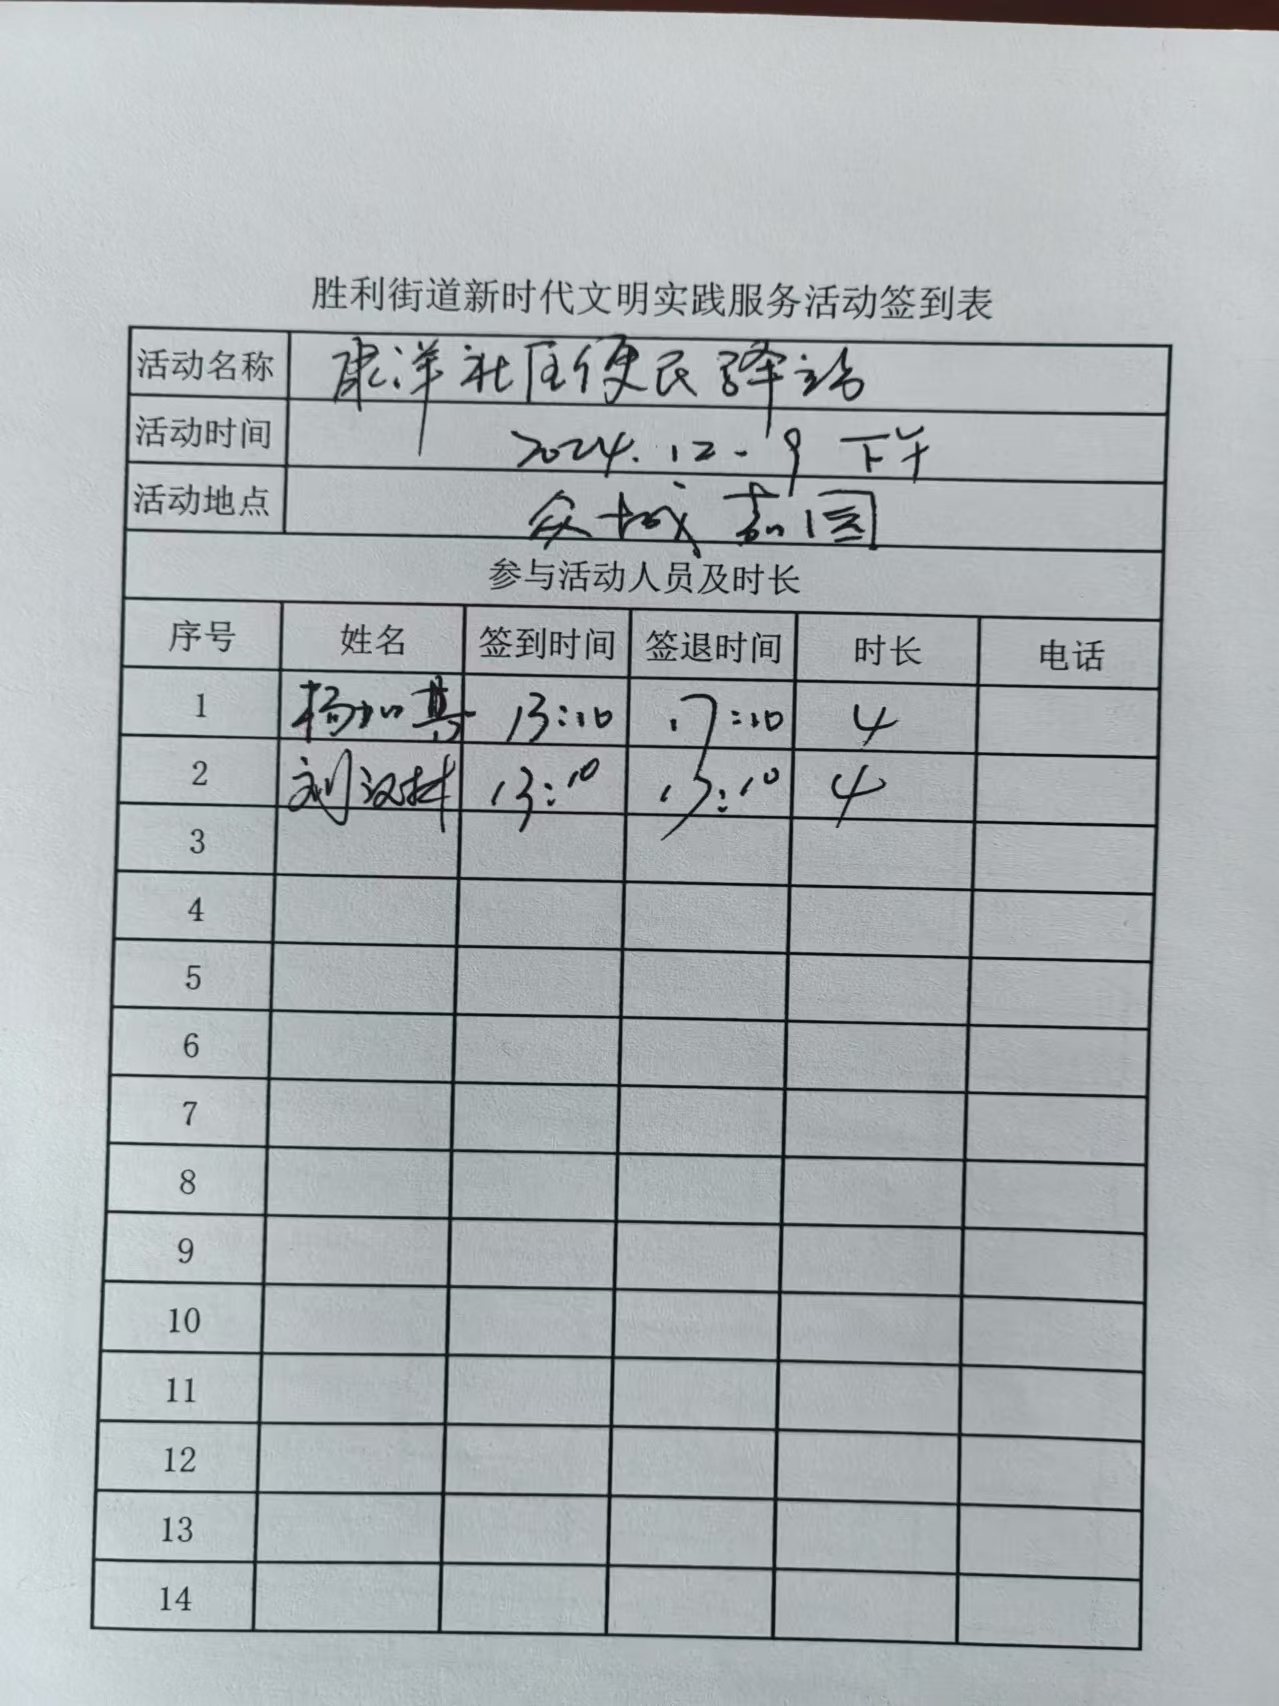 胜利街道新时代文明实践服务活动签到表
活动名称 康洋社区便民驿站
活动时间 2024.12.9 下午
活动地点 众城嘉园
参与活动人员及时长
序号 姓名 签到时间 签退时间 时长 电话
1 杨如其 13:10 17:10 4
2 刘汉林 13:10 4
3
4
5
6
7
8
9
10
11
12
13
14